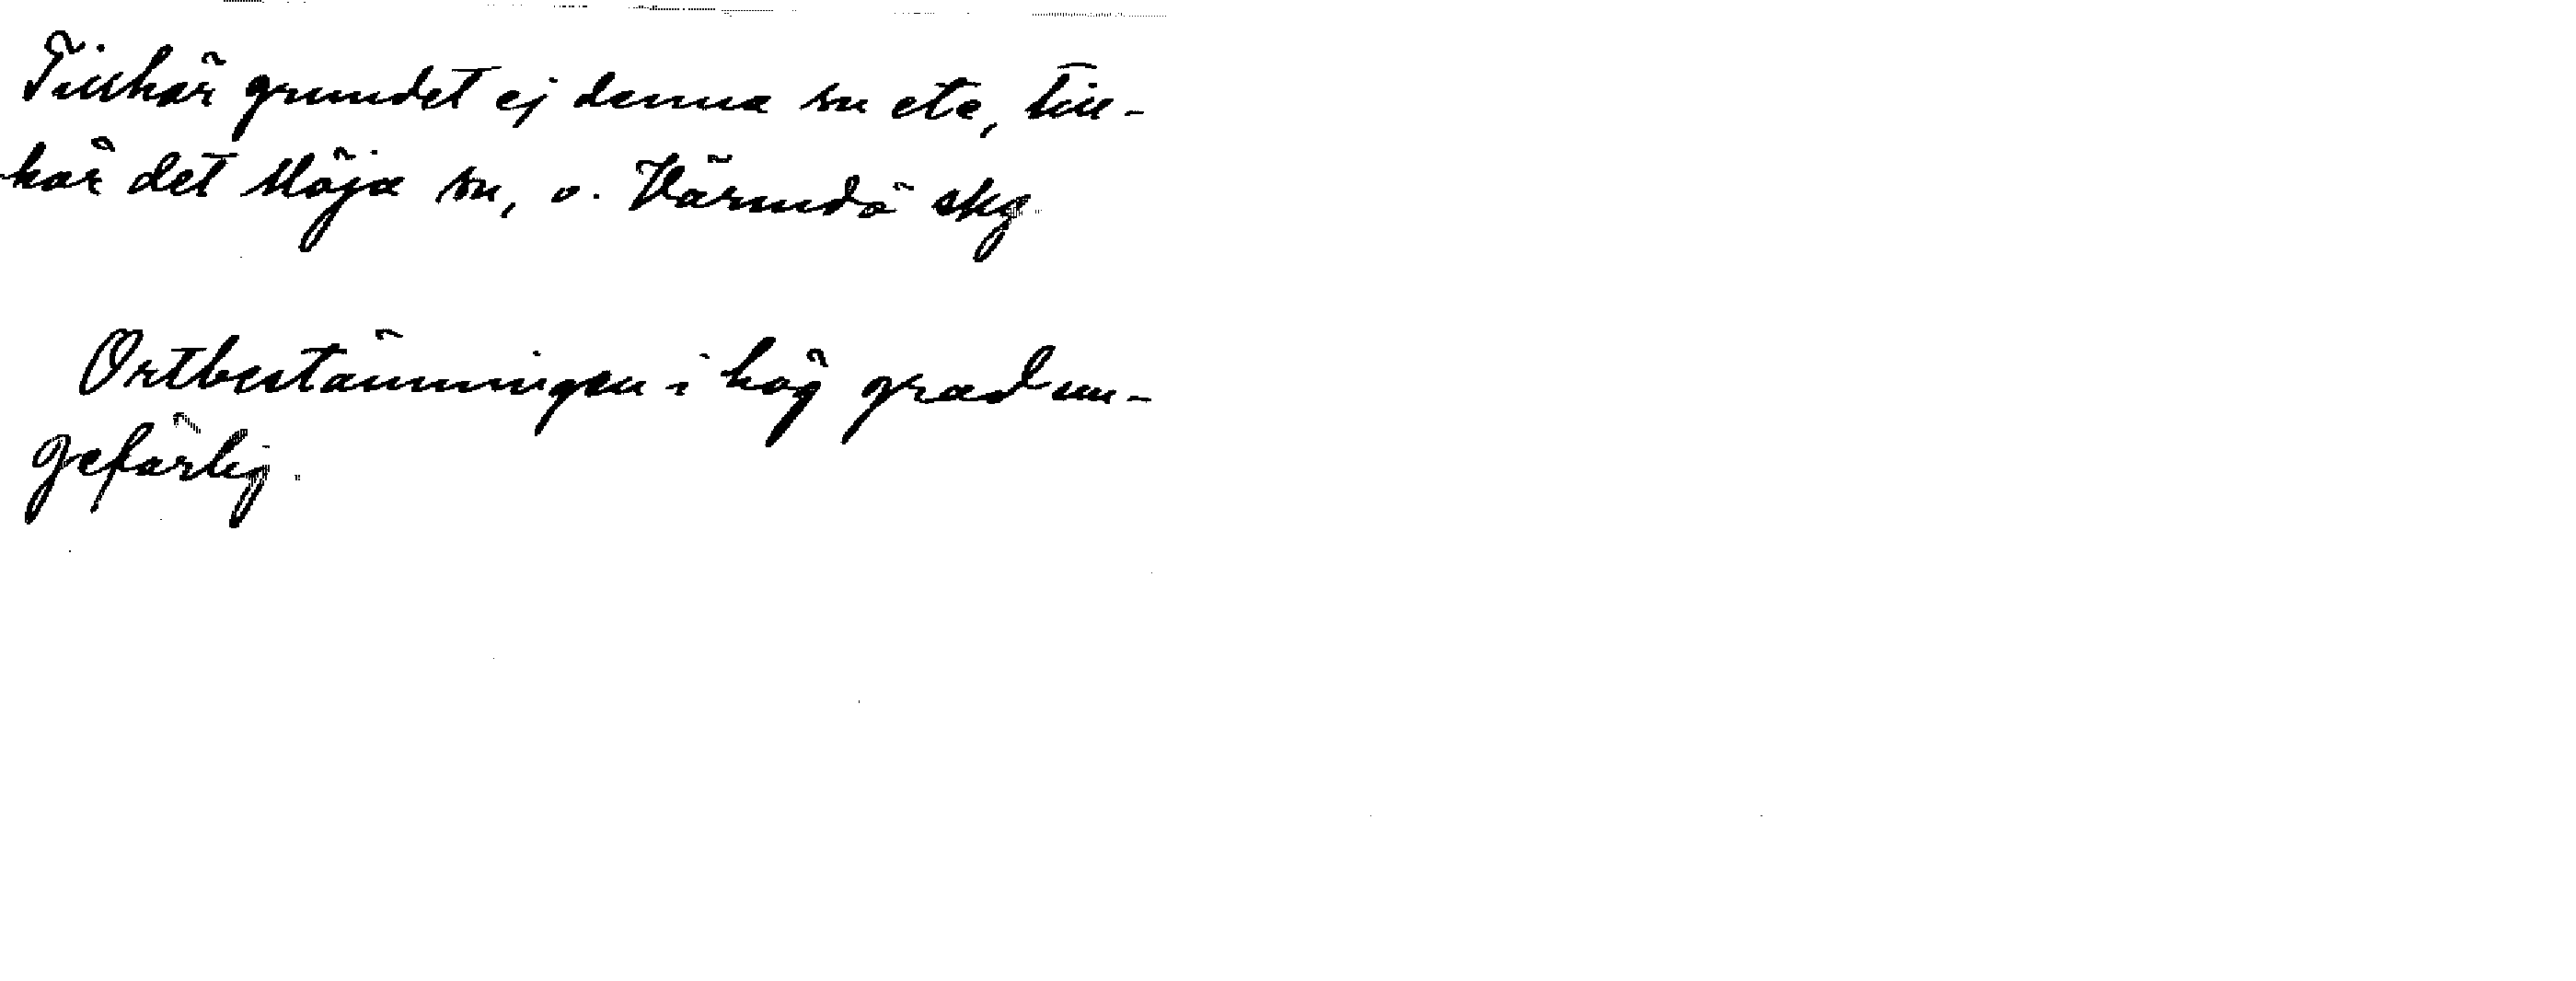 Tillhör grundet ej denna sn etc, till-
hör det Möja sn, o. Värmdö skg.
Ortbestämningen i hög grad un-
gefärlig.